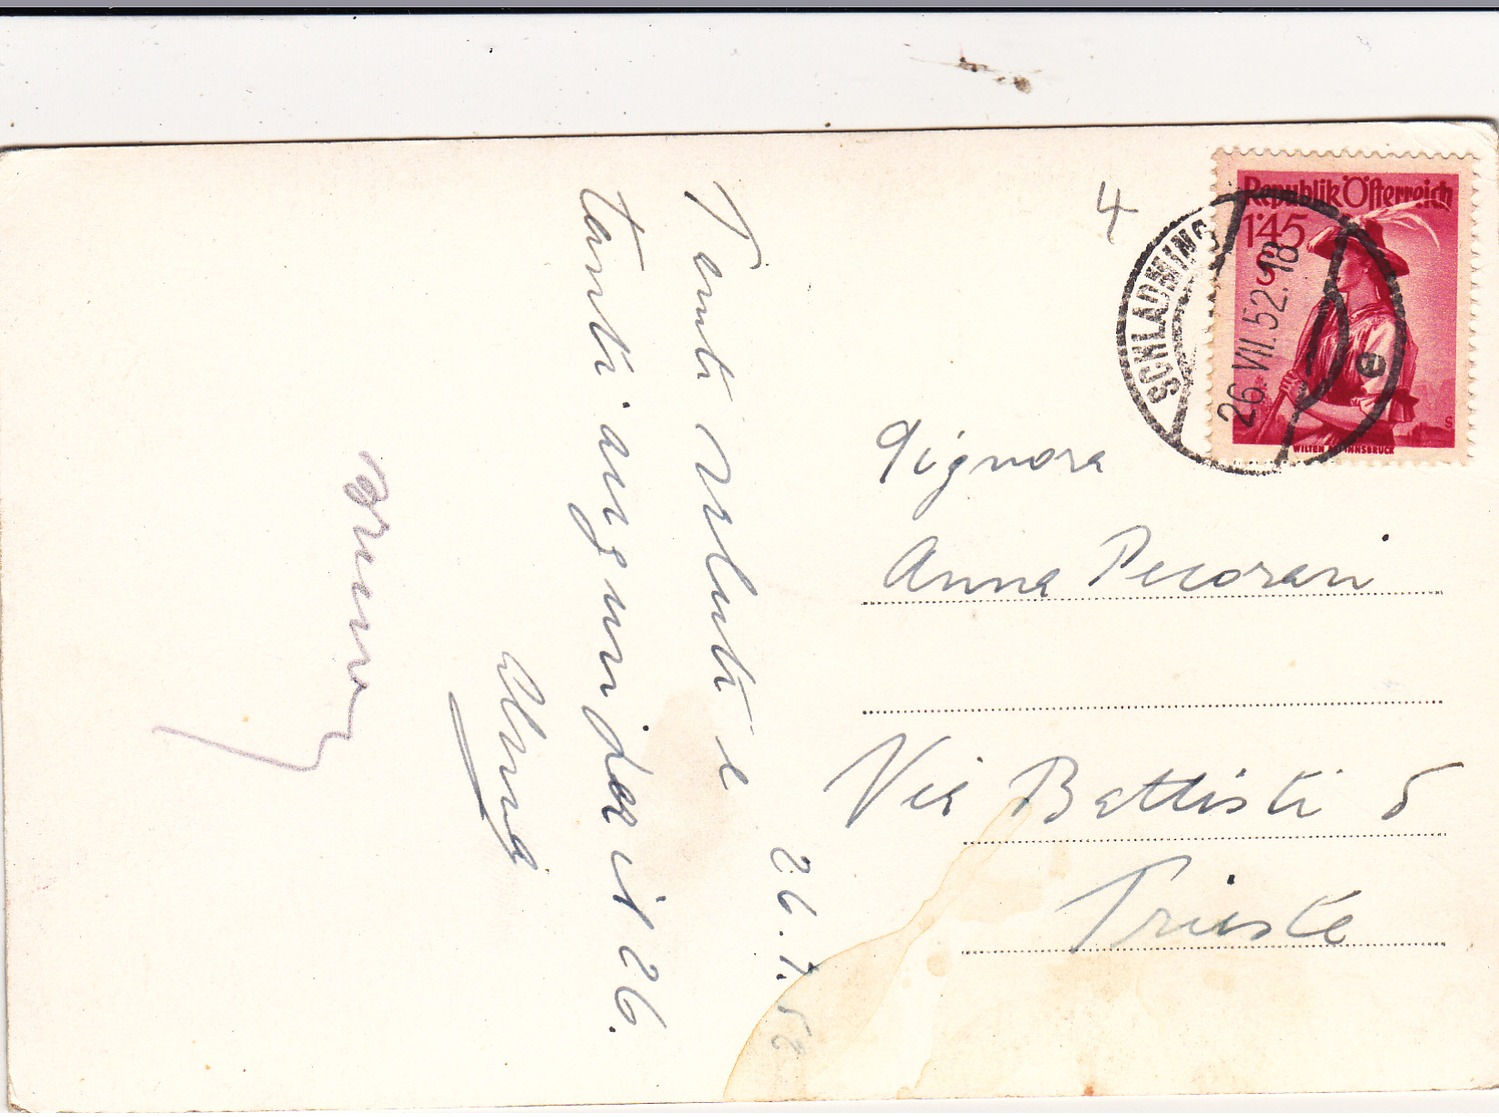 4
Republik Österreich
1'45
S
WILTEN BEI INNSBRUCK
SCHLADMING
26.VII.52.18
e
26.7.52
Tanti saluti e
tanti auguri per il 26.
Signora
Anna Pecorari
Via Battisti 5
Trieste